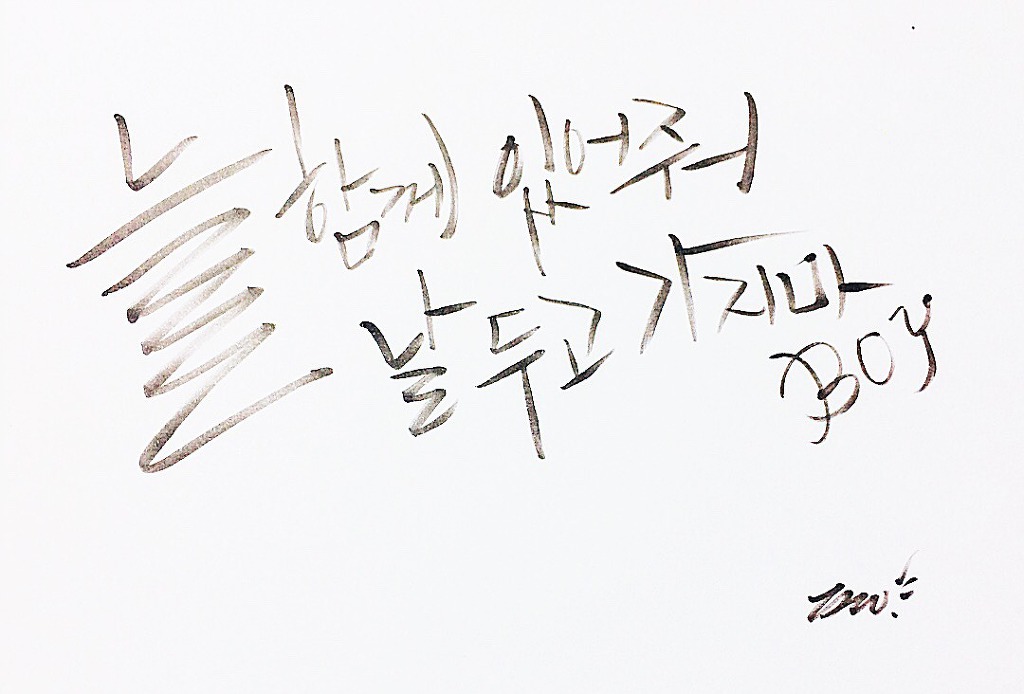 늘 함께 있어줘
날 두고 가지마
BOY